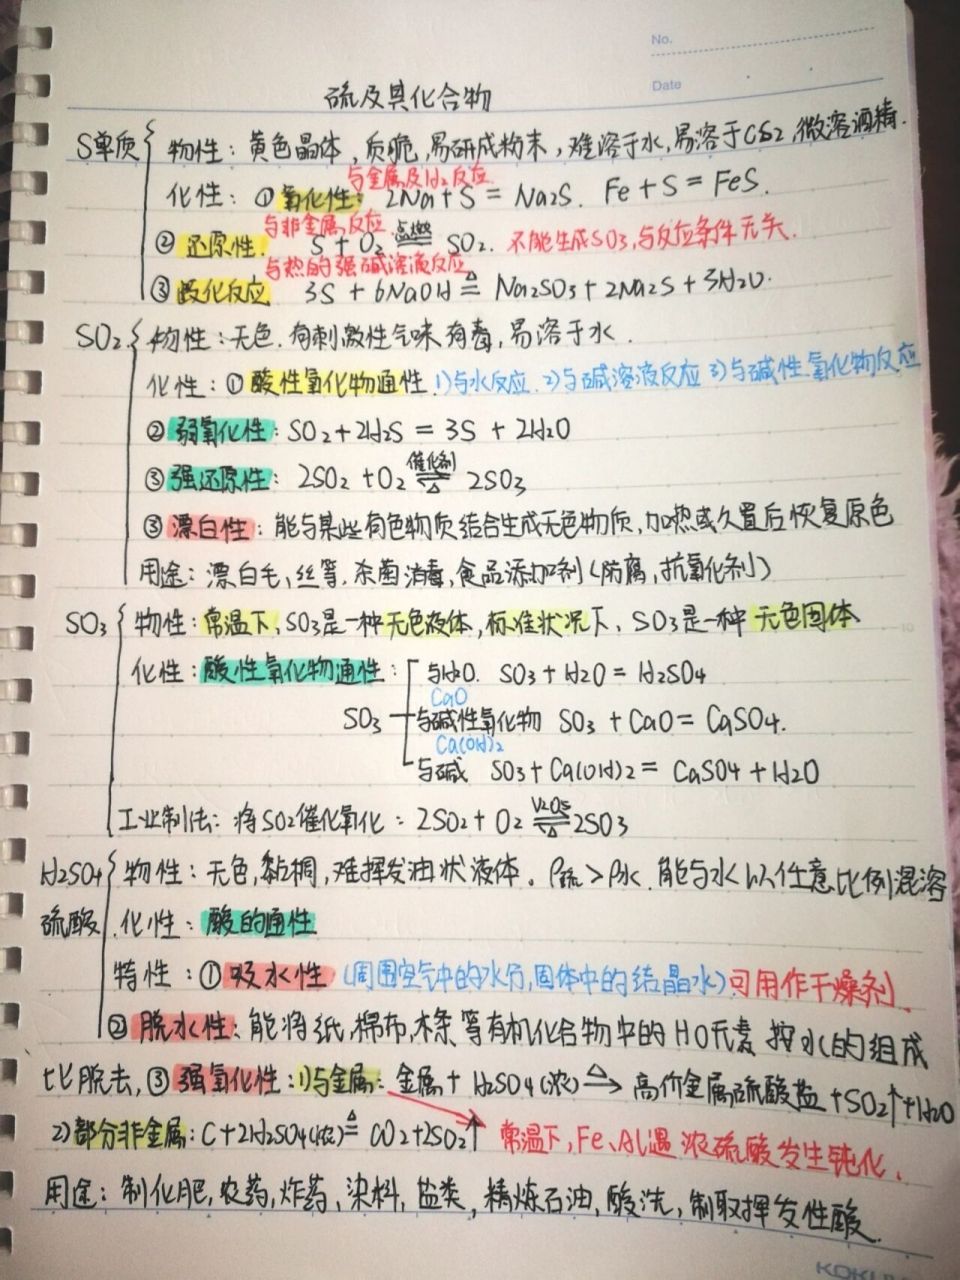 No.
Date
硫及其化合物
S单质 物性：黄色晶体，质脆，易研成粉末，难溶于水，易溶于CS2，微溶酒精.
与金属及H2反应
化性：① 氧化性： 2Na+S = Na2S. Fe+S = FeS.
与非金属反应
② 还原性. S+O2 点燃 SO2. 不能生成SO3,与反应条件无关.
与热的强碱溶液反应
③ 歧化反应 3S+6NaOH ≜ Na2SO3+2Na2S+3H2O.
SO2 物性：无色.有刺激性气味有毒,易溶于水.
化性：① 酸性氧化物通性 1)与水反应 2)与碱溶液反应 3)与碱性氧化物反应
② 弱氧化性：SO2+2H2S = 3S+2H2O
③ 强还原性： 2SO2+O2 催化剂 ⇌ △ 2SO3
③ 漂白性：能与某些有色物质结合生成无色物质,加热或久置后恢复原色
用途：漂白毛,丝等.杀菌消毒,食品添加剂(防腐,抗氧化剂)
SO3 物性：常温下,SO3是一种无色液体,标准状况下,SO3是一种无色固体
化性：酸性氧化物通性： 与H2O. SO3+H2O = H2SO4
CaO
SO3 与碱性氧化物 SO3+CaO = CaSO4.
Ca(OH)2
与碱 SO3+Ca(OH)2 = CaSO4+H2O
工业制法：将SO2催化氧化：2SO2+O2 V2O5 ⇌ △ 2SO3
H2SO4 物性：无色,黏稠,难挥发油状液体. ρ硫>ρ水.能与水以任意比例混溶
硫酸. 化性：酸的通性
特性：① 吸水性 (周围空气中的水分,固体中的结晶水) 可用作干燥剂.
② 脱水性：能将纸,棉布,木条等有机化合物中的HO元素按水的组成
比脱去, ③ 强氧化性：1)与金属：金属+H2SO4(浓) △→ 高价金属硫酸盐+SO2↑+H2O
2)部分非金属：C+2H2SO4(浓) ≜ CO2+2SO2↑ 常温下,Fe、Al遇浓硫酸发生钝化.
用途：制化肥,农药,炸药,染料,盐类,精炼石油,酸洗,制取挥发性酸.